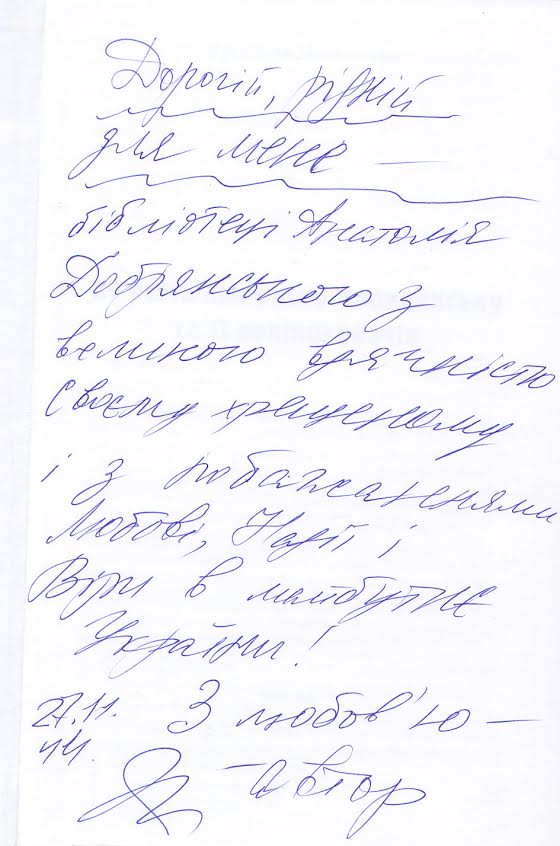 Дорогій, рідній
для мене —
бібліотеці Анатолія
Добрянського з
великою вдячністю
Своєму хрещеному
і з побажаннями
Любові, Надії і
Віри в майбутнє
України!
27.11. З любов'ю —
14. — автор